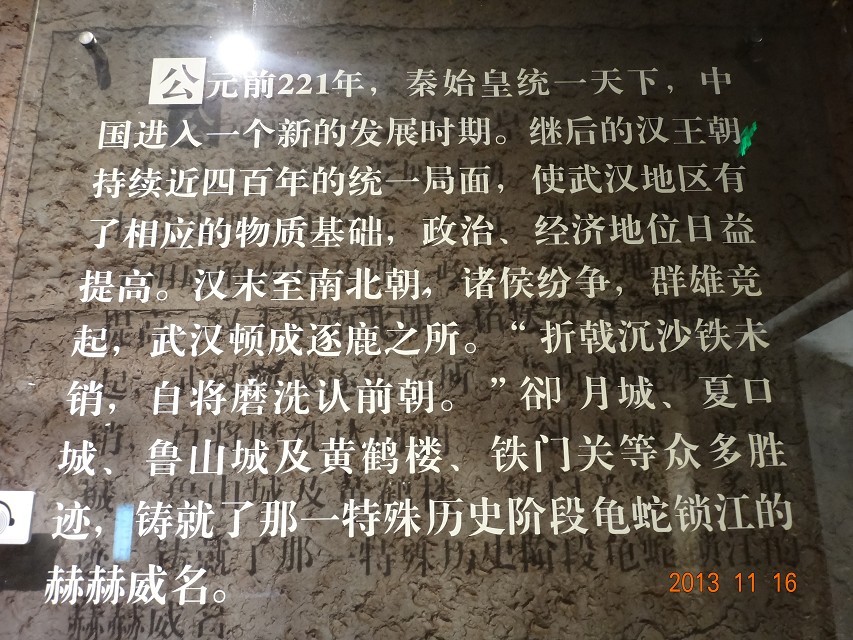 公元前221年，秦始皇统一天下，中
国进入一个新的发展时期。继后的汉王朝
持续近四百年的统一局面，使武汉地区有
了相应的物质基础，政治、经济地位日益
提高。汉末至南北朝，诸侯纷争，群雄竞
起，武汉顿成逐鹿之所。“折戟沉沙铁未
销，自将磨洗认前朝。”卻月城、夏口
城、鲁山城及黄鹤楼、铁门关等众多胜
迹，铸就了那一特殊历史阶段龟蛇锁江的
赫赫威名。
2013 11 16